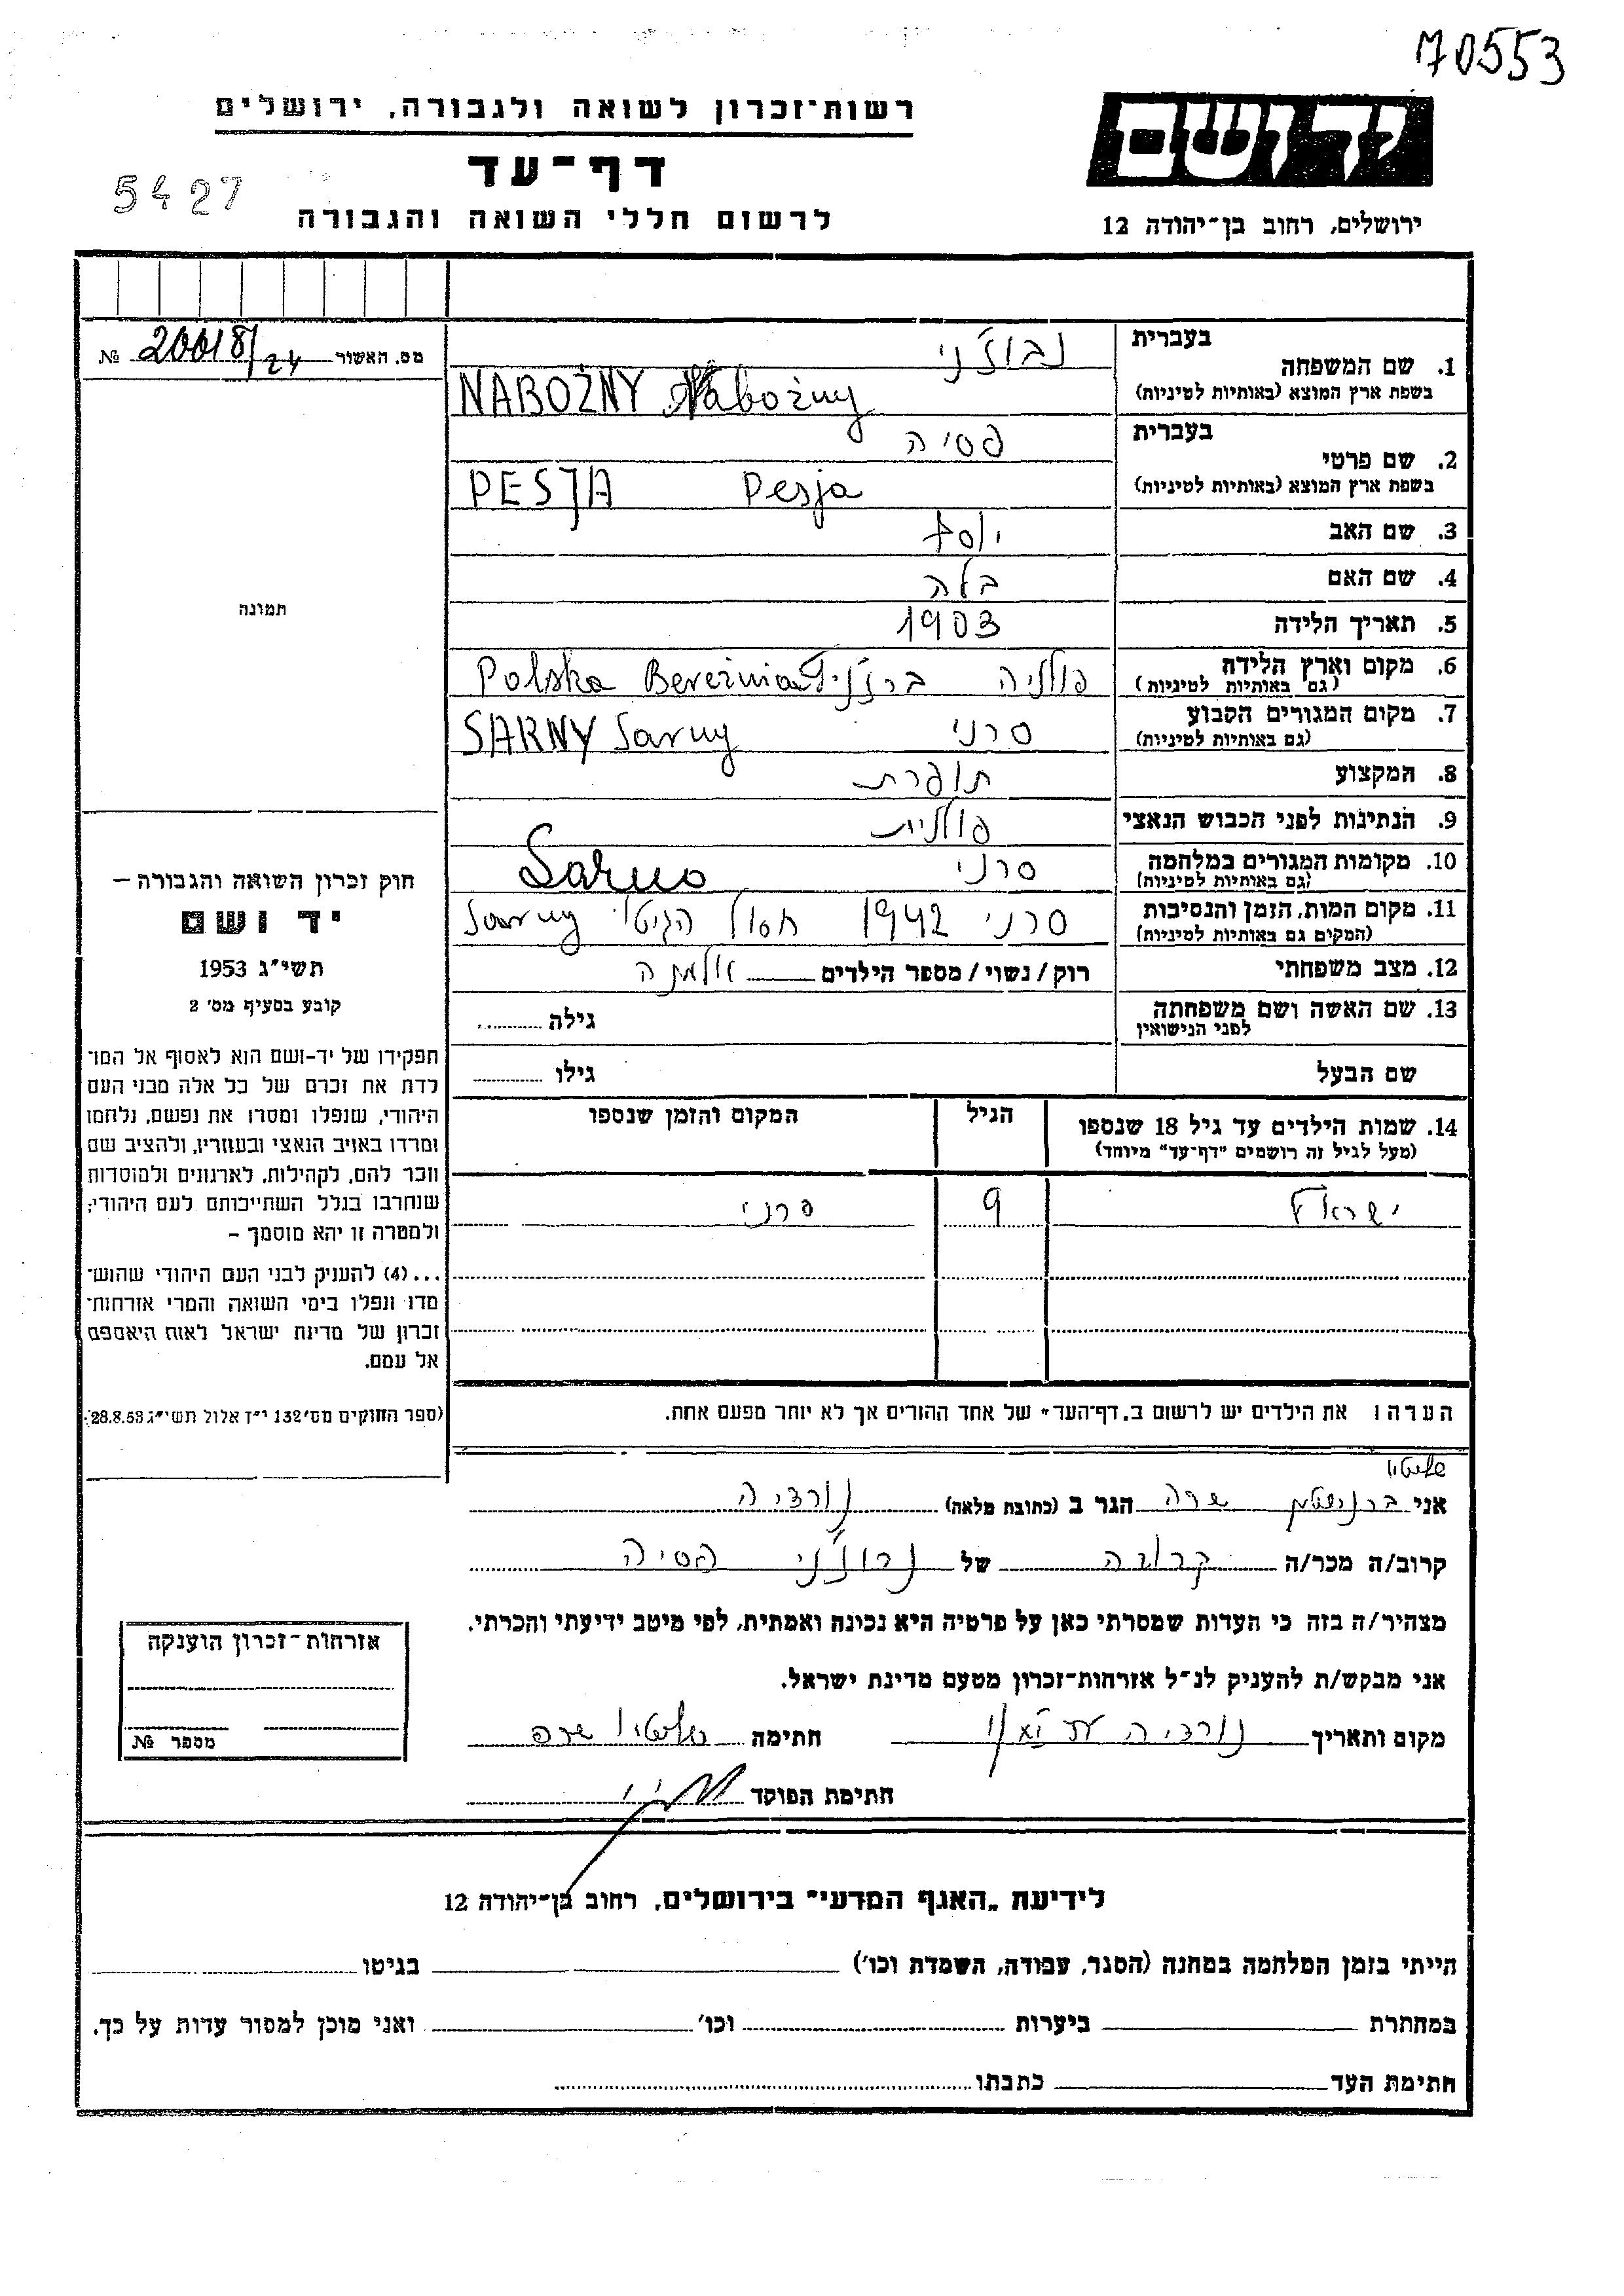 70553
רשות־זכרון לשואה ולגבורה, ירושלים
יד ושם
דף־עד
5427
לרשום חללי השואה והגבורה
ירושלים, רחוב בן־יהודה 12
מס. האשור 20018/24 №
1. שם המשפחה
בעברית נבוז'ני
בשפת ארץ המוצא (באותיות לטיניות) NABOŻNY Nabożny
2. שם פרטי
בעברית פסיה
בשפת ארץ המוצא (באותיות לטיניות) PESJA Pesja
3. שם האב יוסף
4. שם האם בלה
5. תאריך הלידה 1903
6. מקום וארץ הלידה פולניה
(גם באותיות לטיניות) Polska
7. מקום המגורים הקבוע סרני SARNY Sarny
(גם באותיות לטיניות)
8. המקצוע תופרת
9. הנתינות לפני הכבוש הנאצי פולנית
10. מקומות המגורים במלחמה סרני
(גם באותיות לטיניות)
11. מקום המות, הזמן והנסיבות סרני 1942 חסול הגיטו Sarny
(המקום גם באותיות לטיניות)
12. מצב משפחתי רוק / נשוי / מספר הילדים אלמנה
13. שם האשה ושם משפחתה גילה
לפני הנישואין
שם הבעל גילו
תמונה
חוק זכרון השואה והגבורה –
יד ושם
תשי״ג 1953
קובע בסעיף מס׳ 2
תפקידו של יד-ושם הוא לאסוף אל המו־
לדת את זכרם של כל אלה מבני העם
היהודי, שנפלו ומסרו את נפשם, נלחמו
ומרדו באויב הנאצי ובעוזריו, ולהציב שם
וזכר להם, לקהילות, לארגונים ולמוסדות
שנחרבו בגלל השתייכותם לעם היהודי;
ולמטרה זו יהא מוסמך –
...(4) להעניק לבני העם היהודי שהוש־
מדו ונפלו בימי השואה והמרי אזרחות־
זכרון של מדינת ישראל לאות היאספם
אל עמם.
(ספר החוקים מס׳ 132 י״ז אלול תשי״ג 28.8.53)
14. שמות הילדים עד גיל 18 שנספו הגיל המקום והזמן שנספו
(מעל לגיל זה רושמים "דף־עד" מיוחד)
ישראל 9 סרני
הערה: את הילדים יש לרשום ב„דף־העד" של אחד ההורים אך לא יותר מפעם אחת.
אני שרה הגר ב (כתובת מלאה) נורדיה
קרוב/ה מכר/ה קרובה של נבוז'ני פסיה
מצהיר/ה בזה כי העדות שמסרתי כאן על פרטיה היא נכונה ואמתית, לפי מיטב ידיעתי והכרתי.
אני מבקש/ת להעניק לנ״ל אזרחות־זכרון מטעם מדינת ישראל.
מקום ותאריך נורדיה חתימה
חתימת הפוקד
אזרחות־זכרון הוענקה
מספר №
לידיעת „האגף המדעי" בירושלים, רחוב בן־יהודה 12
הייתי בזמן המלחמה במחנה (הסגר, עבודה, השמדת וכו׳) בגיטו
במחתרת ביערות וכו׳ ואני מוכן למסור עדות על כך.
חתימת העד כתבתו